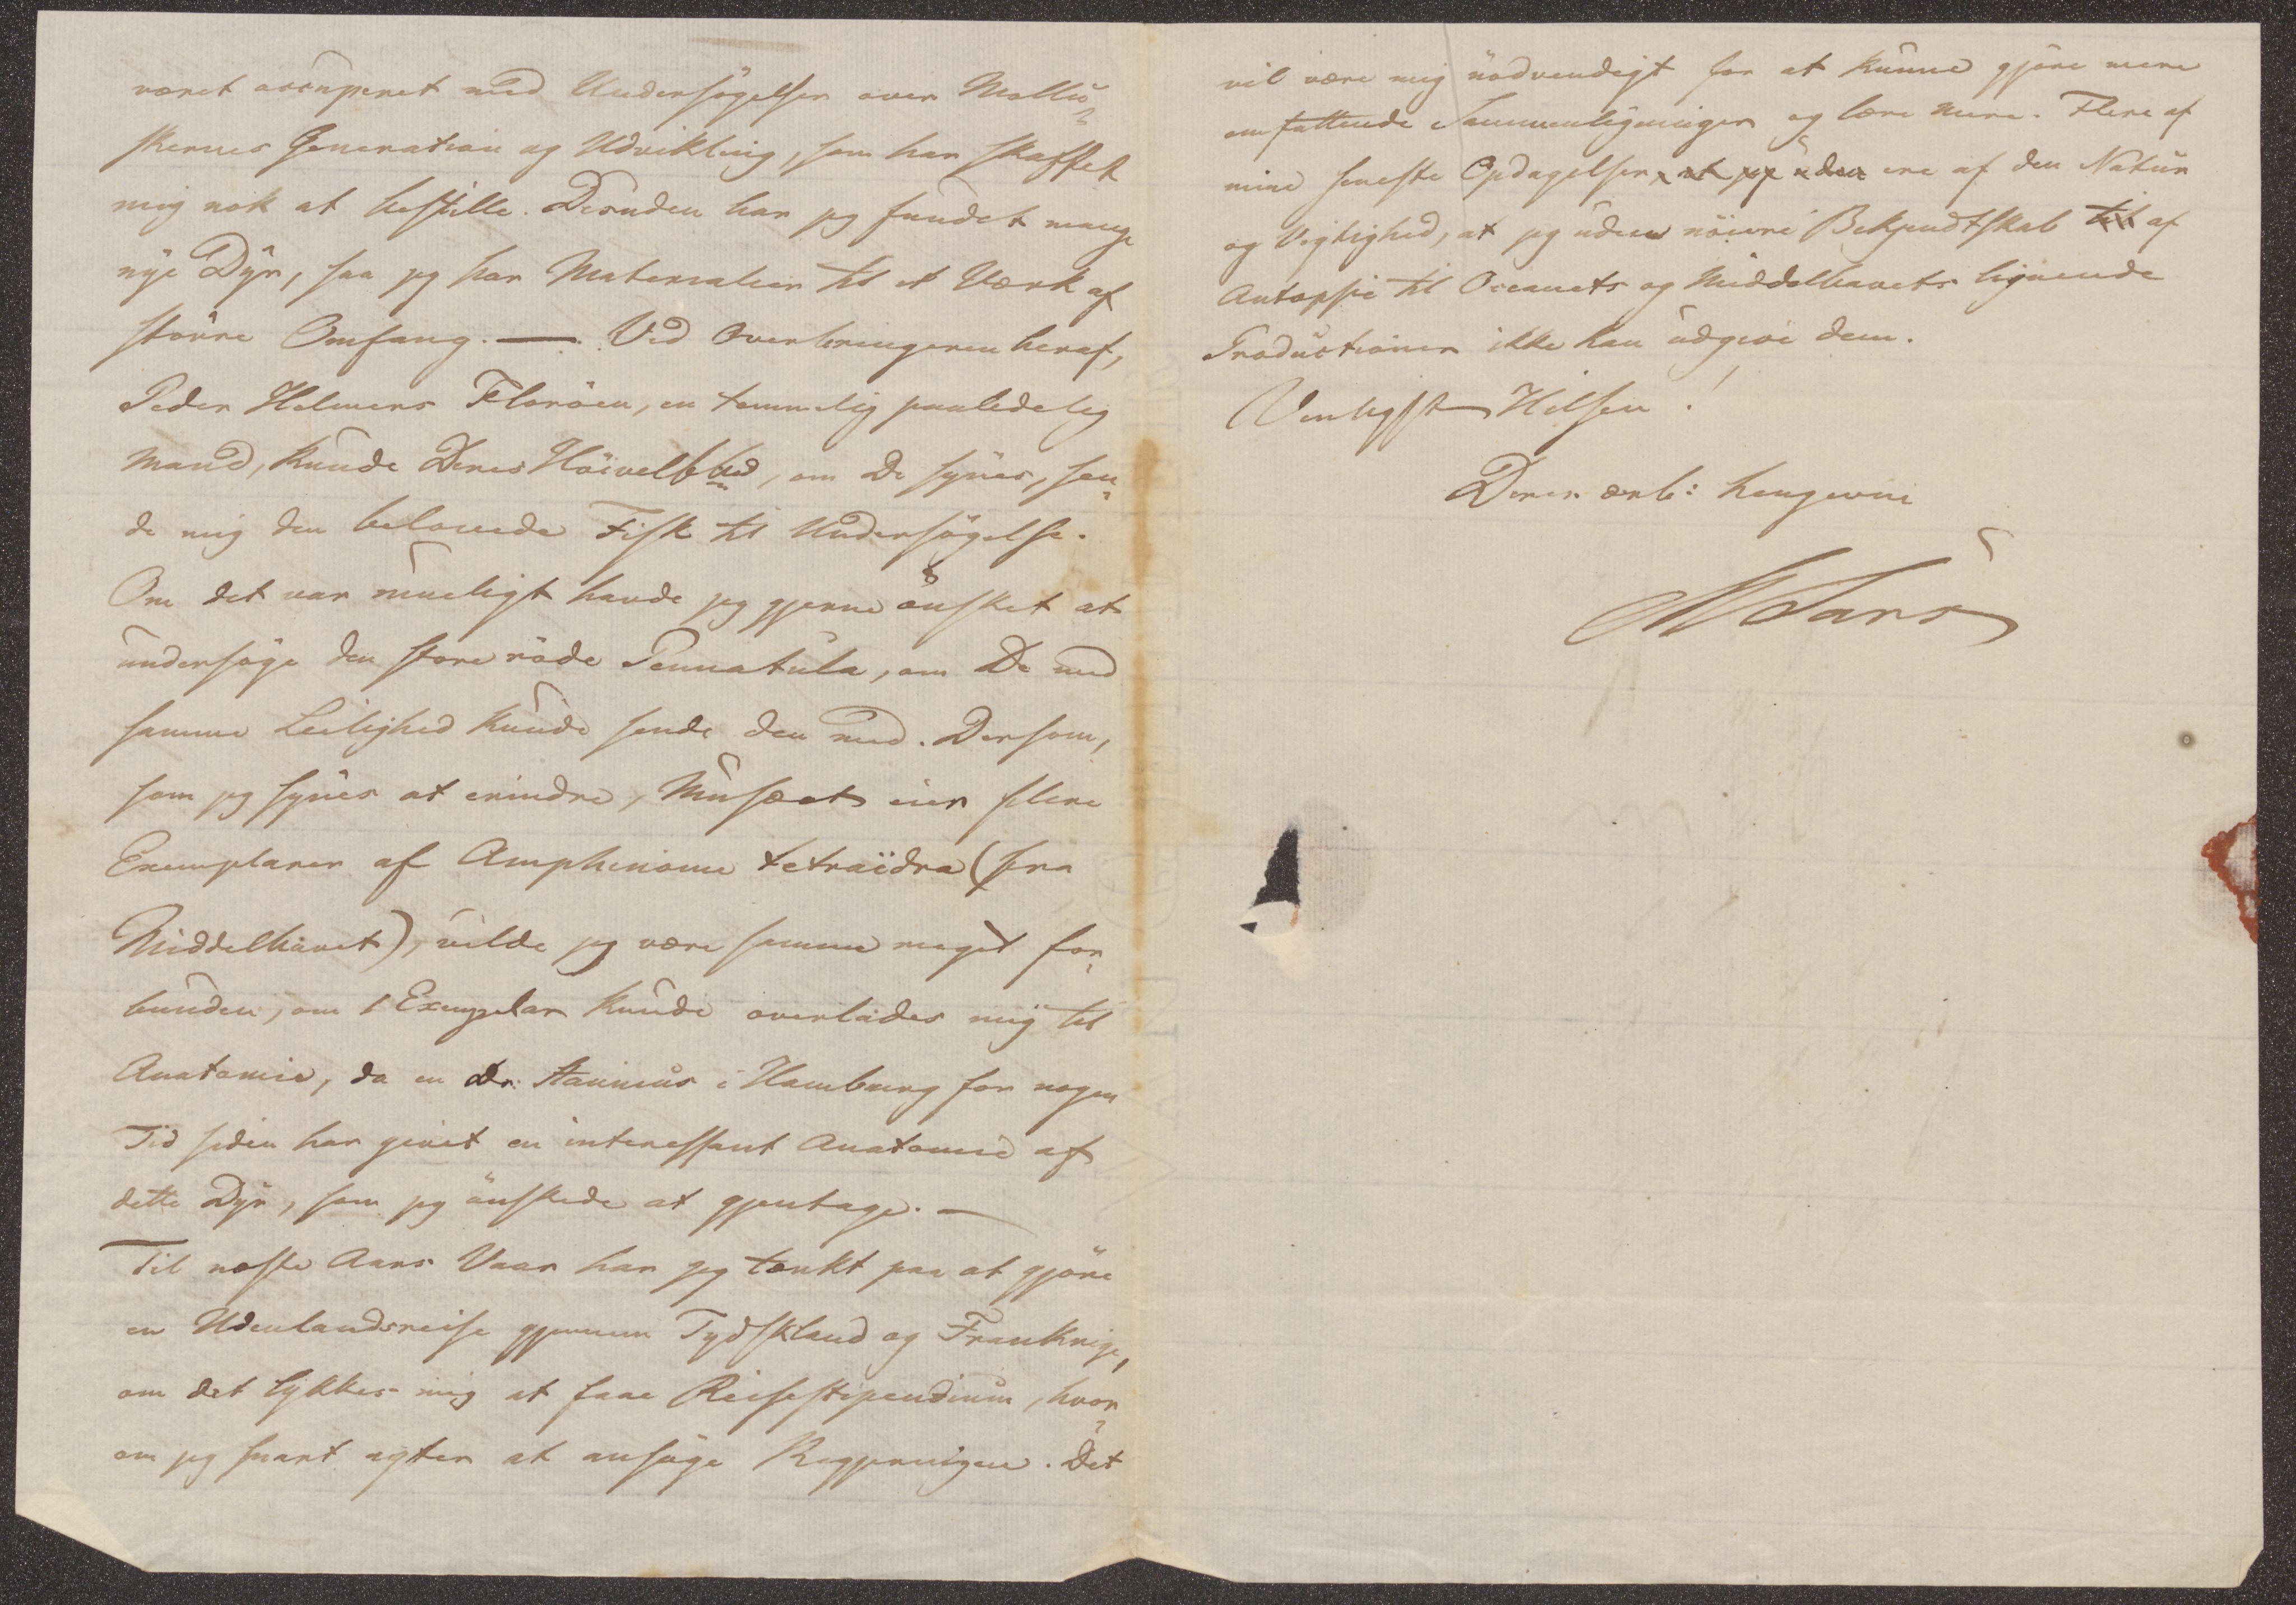 været occuperet med Undersögelser over Mollu-
skernes Generation og Udvikling, som har skaffet
mig nok at bestille. Desuden har jeg fundet mange
nye Dyr, saa jeg har Materialier til et Værk af
större Omfang. — Ved Overbringeren heraf,
Peder Helmers Floröen, en temmelig paalidelig
Mand, kunde Deres Höivelbhed, om De synes, sen-
de mig den belovede Fisk til Undersögelse.
Om det var mueligt havde jeg gjerne önsket at
undersöge den store röde Pennatula, om De med
samme Leilighed kunde sende den med. Dersom,
som jeg synes at erindre, Musæet eier flere
Exemplarer af Amphinome tetraëdra (fra
Middelhavet), vilde jeg være samme meget for-
bunden, om 1 Exemplar kunde overlades mig til
Anatomie, da en Dr. Stannius i Hamburg for nogen
Tid siden har givet en interessant Anatomie af
dette Dyr, som jeg önskede at gjentage. —
Til næste Aars Vaar har jeg tænkt paa at gjöre
en Udenlandsreise gjennem Tydskland og Frankrige,
om det lykkes mig at faae Reisestipendium, hvor-
om jeg snart agter at ansöge Regjeringen. Det
vil være mig nödvendigt for at kunne gjöre mere
omfattende Sammenligninger og lære mere. Flere af
mine seneste Opdagelser, at jeg uden ere af den Natur
og Vigtighed, at jeg uden nöiere Bekjendtskab til af
Autopsie til Oceanets og Middelhavets lignende
Productioner ikke kan udgive dem.
Venligst Hilsen!
Deres ærb: hengivne
M Sars